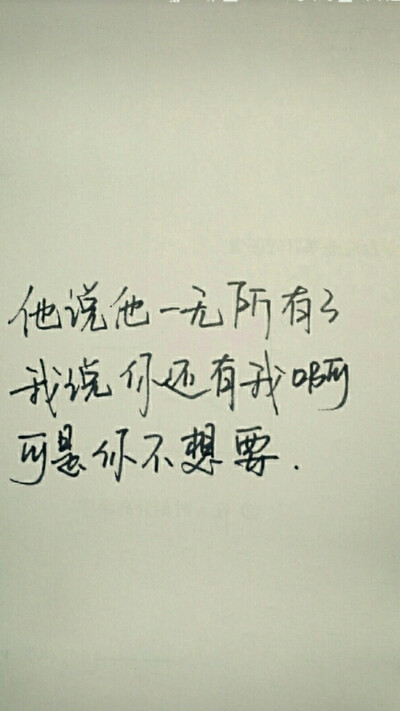 他说他一无所有了
我说你还有我啊
可是你不想要.